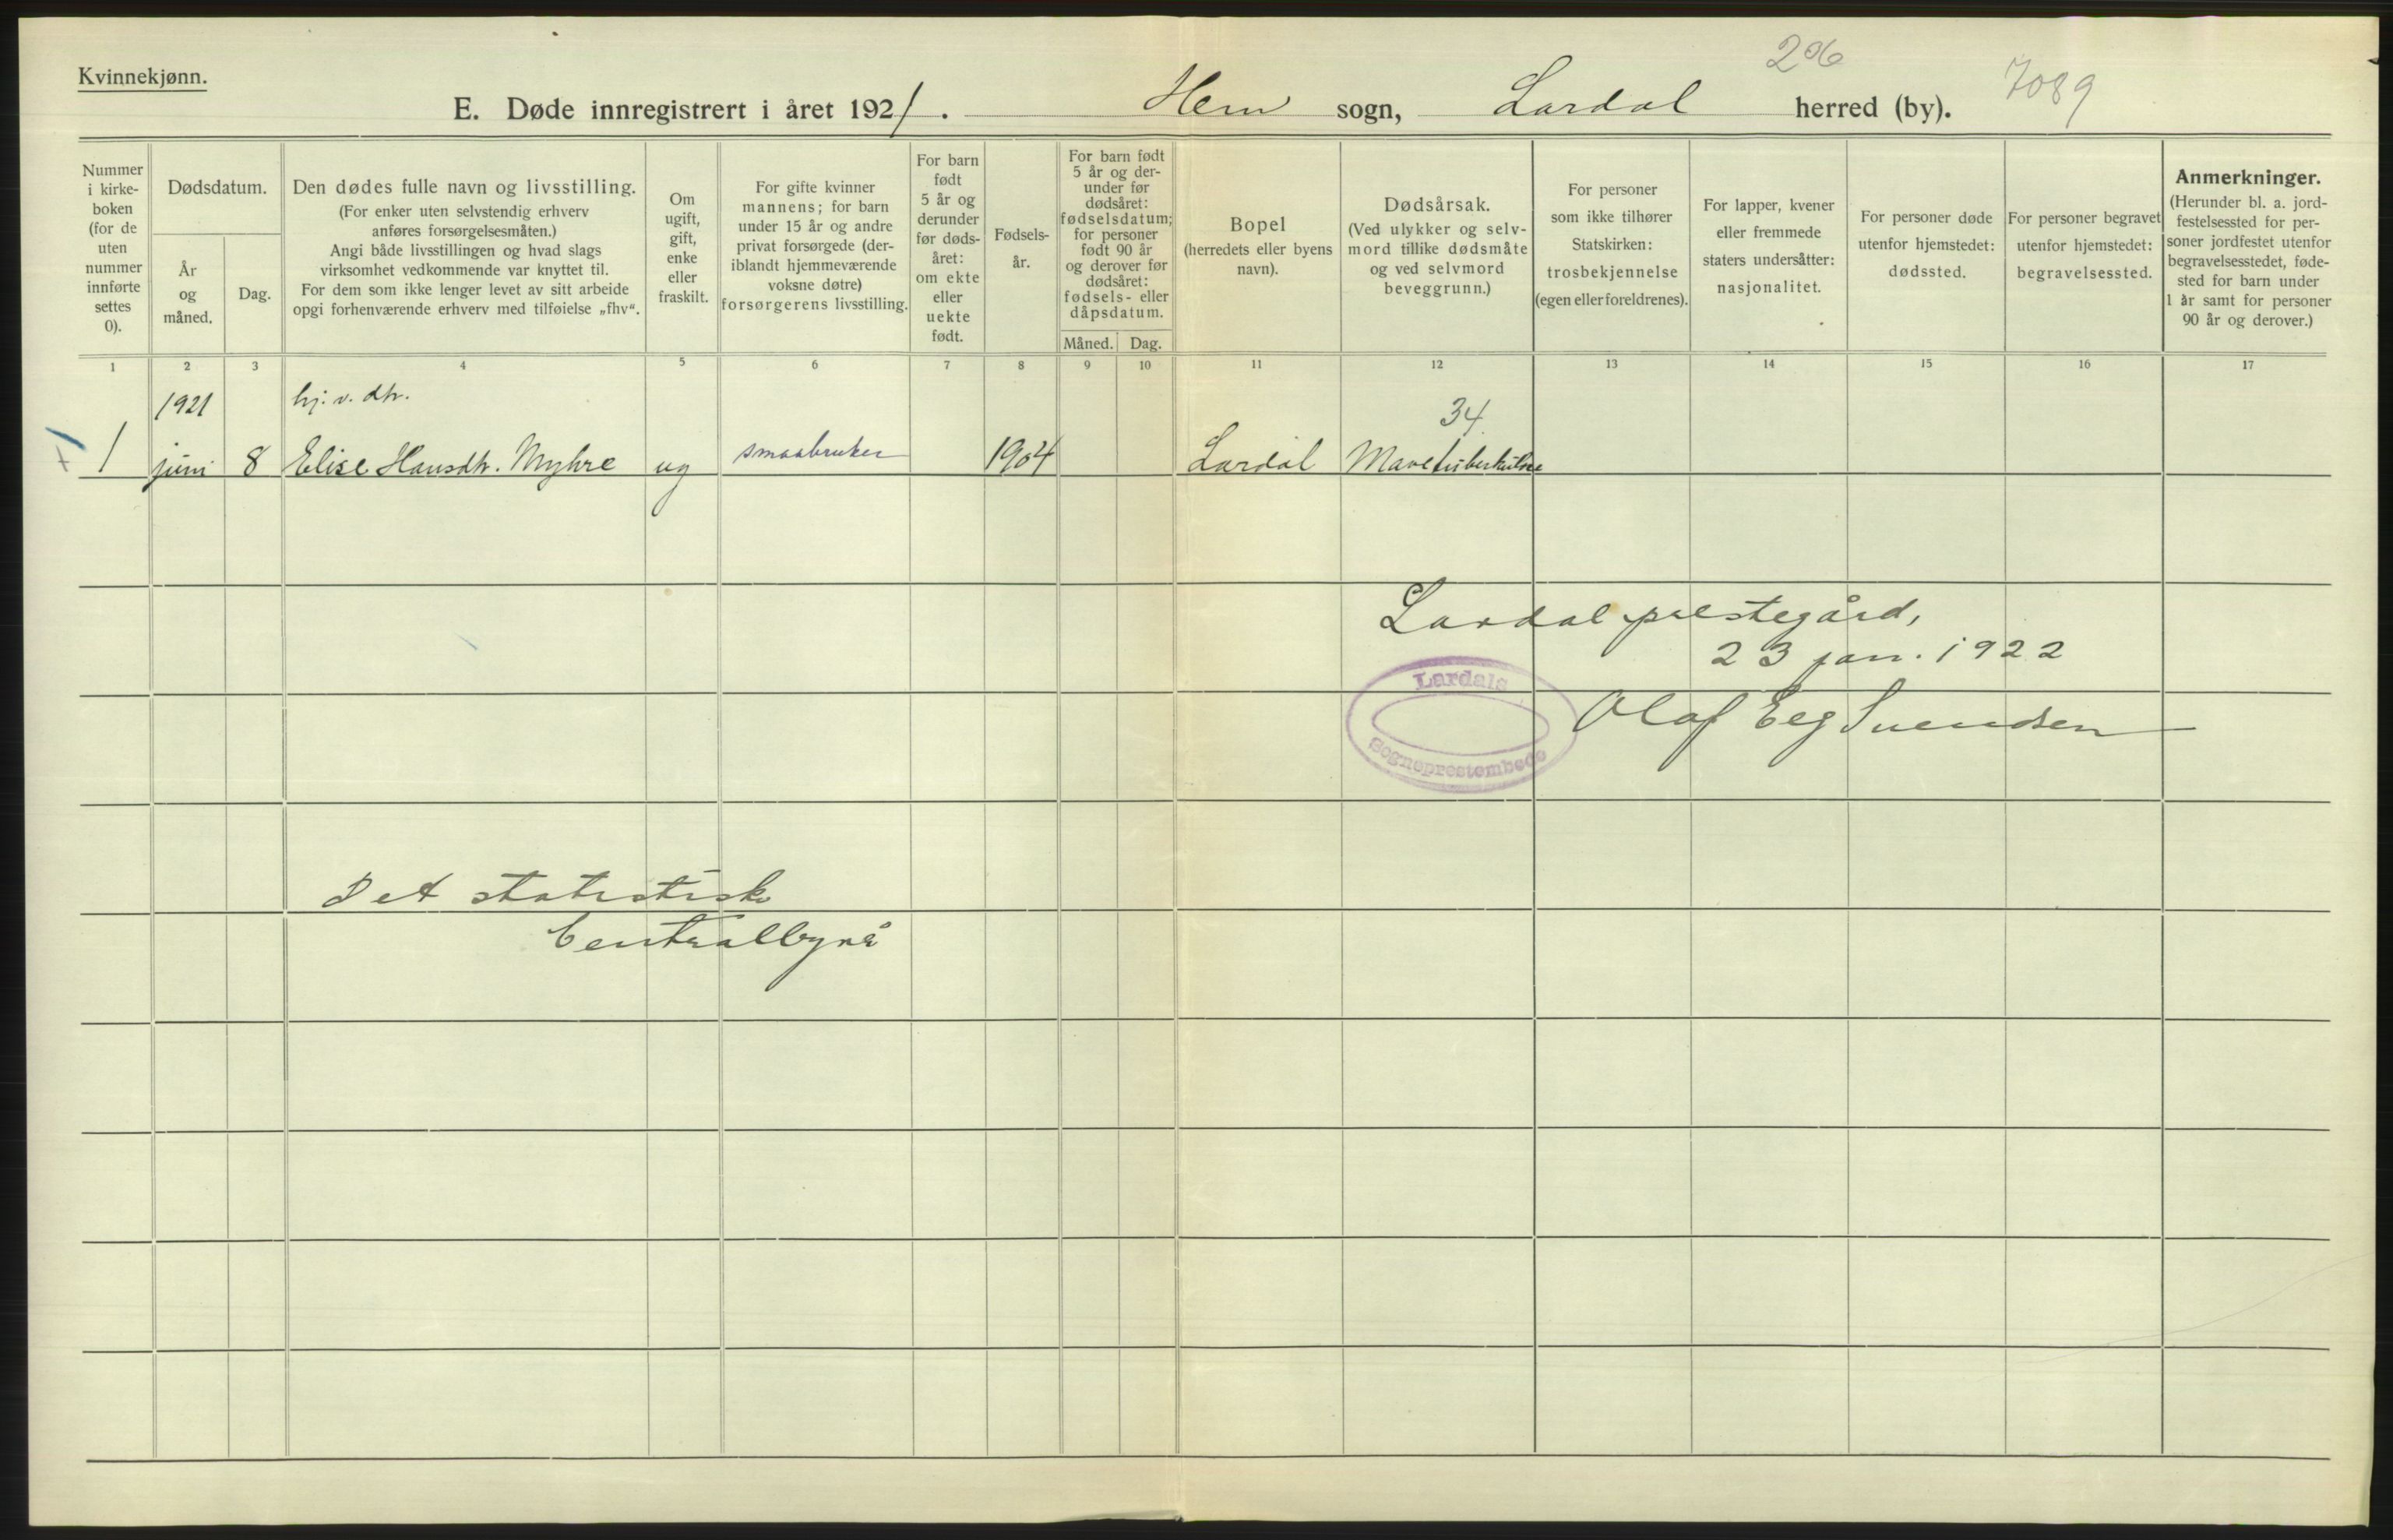 206
7089
Kvinnekjønn.
E. Døde innregistrert i året 1921. Hem sogn, Lardal herred (by).
Nummer
i kirke-
boken
(for de
uten
nummer
innførte
settes
0).
Dødsdatum.
År
og
måned.
Dag.
Den dødes fulle navn og livsstilling.
(For enker uten selvstendig erhverv
anføres forsørgelsesmåten.)
Angi både livsstillingen og hvad slags
virksomhet vedkommende var knyttet til.
For dem som ikke lenger levet av sitt arbeide
opgi forhenværende erhverv med tilføielse „fhv“.
Om
ugift,
gift,
enke
eller
fraskilt.
For gifte kvinner
mannens; for barn
under 15 år og andre
privat forsørgede (der-
iblandt hjemmeværende
voksne døtre)
forsørgerens livsstilling.
For barn
født
5 år og
derunder
før døds-
året:
om ekte
eller
uekte
født.
Fødsels-
år.
For barn født
5 år og der-
under før
dødsåret:
fødselsdatum;
for personer
født 90 år
og derover før
dødsåret:
fødsels- eller
dåpsdatum.
Måned. Dag.
Bopel
(herredets eller byens
navn).
Dødsårsak.
(Ved ulykker og selv-
mord tillike dødsmåte
og ved selvmord
beveggrunn.)
For personer
som ikke tilhører
Statskirken:
trosbekjennelse
(egen eller foreldrenes).
For lapper, kvener
eller fremmede
staters undersåtter:
nasjonalitet.
For personer døde
utenfor hjemstedet:
dødssted.
For personer begravet
utenfor hjemstedet:
begravelsessted.
Anmerkninger.
(Herunder bl. a. jord-
festelsessted for per-
soner jordfestet utenfor
begravelsesstedet, føde-
sted for barn under
1 år samt for personer
90 år og derover.)
1 2 3 4 5 6 7 8 9 10 11 12 13 14 15 16 17
1921 hj. v. dtr. 34
1 juni 8 Elise Hansdtr. Myhre ug smaabruker 1904 Lardal Mavetuberkulose
Lardal prestegård,
23 jan. 1922
Lardals
Sogneprestembede
Olaf Eeg Svendsen
Det statistiske
Centralbyrå